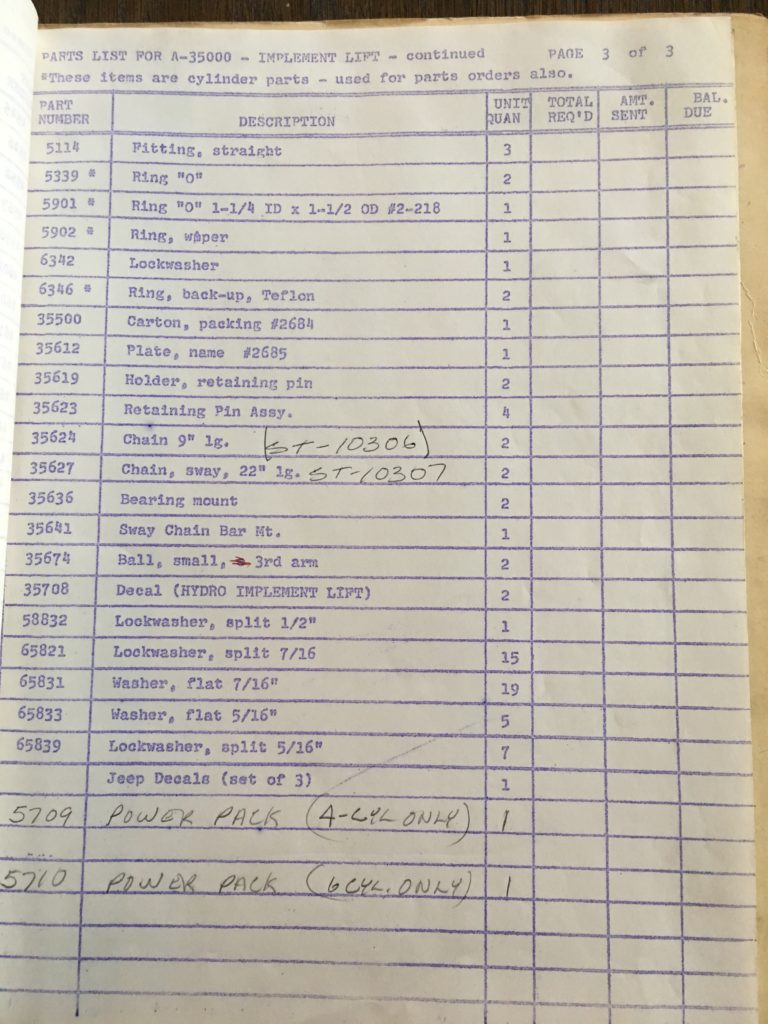 PARTS LIST FOR A-35000 - IMPLEMENT LIFT - continued PAGE 3 of 3
*These items are cylinder parts - used for parts orders also.
PART NUMBER DESCRIPTION UNIT QUAN TOTAL REQ'D AMT. SENT BAL. DUE
5114 Fitting, straight 3
5339 * Ring "O" 2
5901 * Ring "O" 1-1/4 ID x 1-1/2 OD #2-218 1
5902 * Ring, wiper 1
6342 Lockwasher 1
6346 * Ring, back-up, Teflon 2
35500 Carton, packing #2684 1
35612 Plate, name #2685 1
35619 Holder, retaining pin 2
35623 Retaining Pin Assy. 4
35624 Chain 9" lg. (ST-10306) 2
35627 Chain, sway, 22" lg. ST-10307 2
35636 Bearing mount 2
35641 Sway Chain Bar Mt. 1
35674 Ball, small, 3rd arm 2
35708 Decal (HYDRO IMPLEMENT LIFT) 2
58832 Lockwasher, split 1/2" 1
65821 Lockwasher, split 7/16 15
65831 Washer, flat 7/16" 19
65833 Washer, flat 5/16" 5
65839 Lockwasher, split 5/16" 7
Jeep Decals (set of 3) 1
5709 POWER PACK (4-CYL ONLY) 1
5710 POWER PACK (6 CYL. ONLY) 1